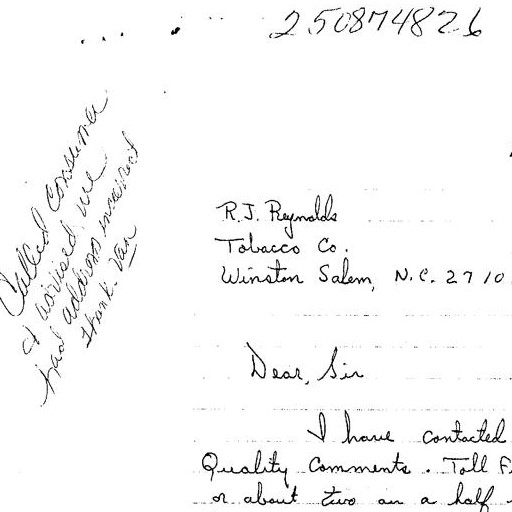 250874826
Called consumer
& advised we
had address incorrect
Thank. Van
R.J. Reynolds
Tobacco Co.
Winston Salem, N.C. 2710
Dear, Sir
I have contacted
Quality Comments. Toll F
or about two an a half